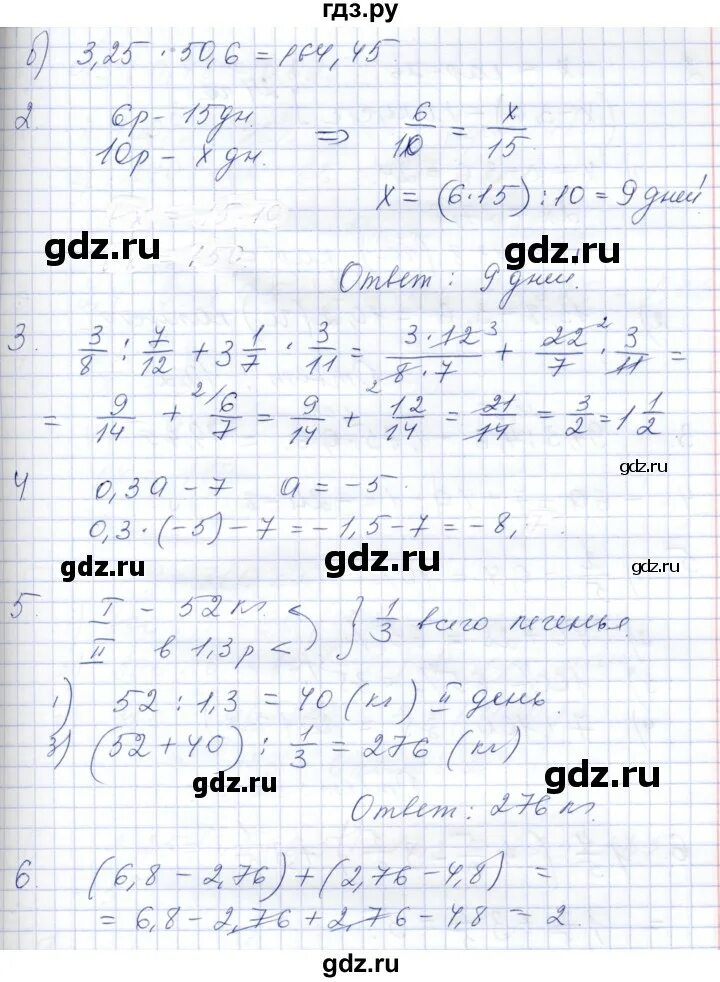 гдз.ру
б) 3,25 · 50,6 = 164,45.
2. 6р – 15дн.
10р – x дн. ⇒ 6/10 = x/15
x = (6·15) : 10 = 9 дней
gdz.ru gdz.ru
Ответ: 9 дней.
3. 3/8 : 7/12 + 3 1/7 · 3/11 = 3·12 3/8·7 2 + 22 2/7 · 3/11 =
= 9/14 + 2/ 6/7 = 9/14 + 12/14 = 21/14 = 3/2 = 1 1/2.
gdz.ru
4 0,3a – 7 a = –5.
0,3 · (–5) – 7 = –1,5 – 7 = –8,
gdz.ru gdz.ru gdz.ru
5. I – 52 кг. <
II в 1,3 р < } 1/3 всего печенья.
1) 52 : 1,3 = 40 (кг) II день.
3) (52 + 40) : 1/3 = 276 (кг)
gdz.ru gdz.ru
Ответ: 276 кг.
6. (6,8 – 2,76) + (2,76 – 4,8) =
= 6,8 – 2,76 + 2,76 – 4,8 = 2.
gdz.ru gdz.ru